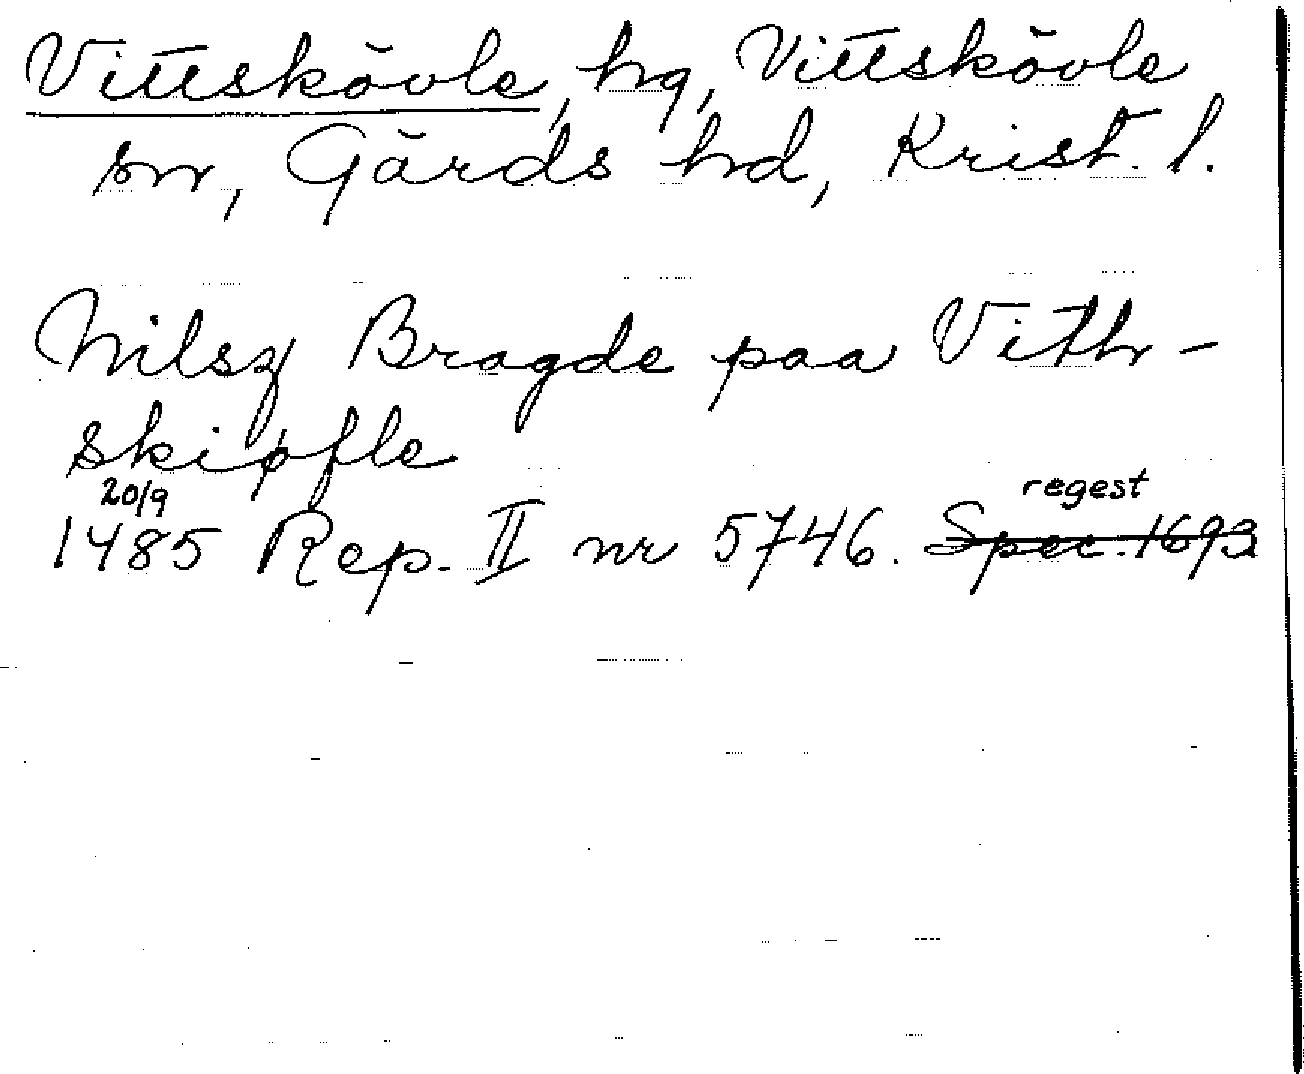 Vittskövle, hg, Vittskövle
sn, Gärds hd, Krist. l.
Nilsz Bragde paa Vith-
skiøfle
20/9 regest
1485 Rep. II nr 5746. Spec. 1693